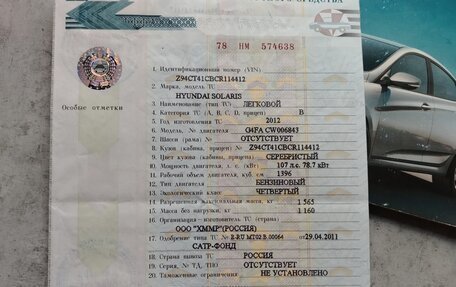 78 НМ 574638
1. Идентификационный номер (VIN)
Z94CT41CBCR114412
2. Марка, модель ТС
HYUNDAI SOLARIS
3. Наименование (тип ТС) ЛЕГКОВОЙ
Особые отметки
4. Категория ТС (A, B, C, D, прицеп) B
5. Год изготовления ТС 2012
6. Модель, № двигателя G4FA CW006843
7. Шасси (рама) № ОТСУТСТВУЕТ
8. Кузов (кабина, прицеп) № Z94CT41CBCR114412
9. Цвет кузова (кабины, прицепа) СЕРЕБРИСТЫЙ
10. Мощность двигателя, л. с. (кВт) 107 л.с. 78.7 кВт
11. Рабочий объем двигателя, куб. см 1396
12. Тип двигателя БЕНЗИНОВЫЙ
13. Экологический класс ЧЕТВЕРТЫЙ
14. Разрешенная максимальная масса, кг 1 565
15. Масса без нагрузки, кг 1 160
16. Организация-изготовитель ТС (страна)
ООО "ХММР"(РОССИЯ)
17. Одобрение типа ТС № E-RU MT02 B 00064 от 29.04.2011
САТР-ФОНД
18. Страна вывоза ТС РОССИЯ
19. Серия, № ТД, ТПО ОТСУТСТВУЕТ
20. Таможенные ограничения НЕ УСТАНОВЛЕНО